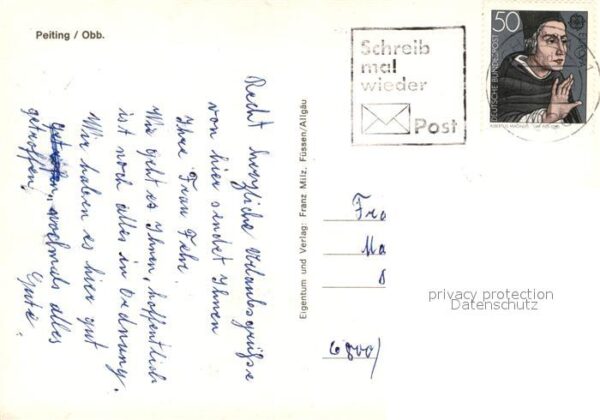 Peiting / Obb.
Recht herzliche Urlaubsgrüße
von hier sendet Ihnen
Ihre Frau Fehr.
Wie geht es Ihnen, hoffentlich
ist noch alles in Ordnung.
Wir haben es hier gut
getroffen, nochmals alles
Gute.
getroffen,
Eigentum und Verlag: Franz Milz, Füssen/Allgäu
Schreib
mal
wieder
Post
50
DEUTSCHE BUNDESPOST
ALBERTUS MAGNUS
Fra
Ma
8
6800/
privacy protection
Datenschutz